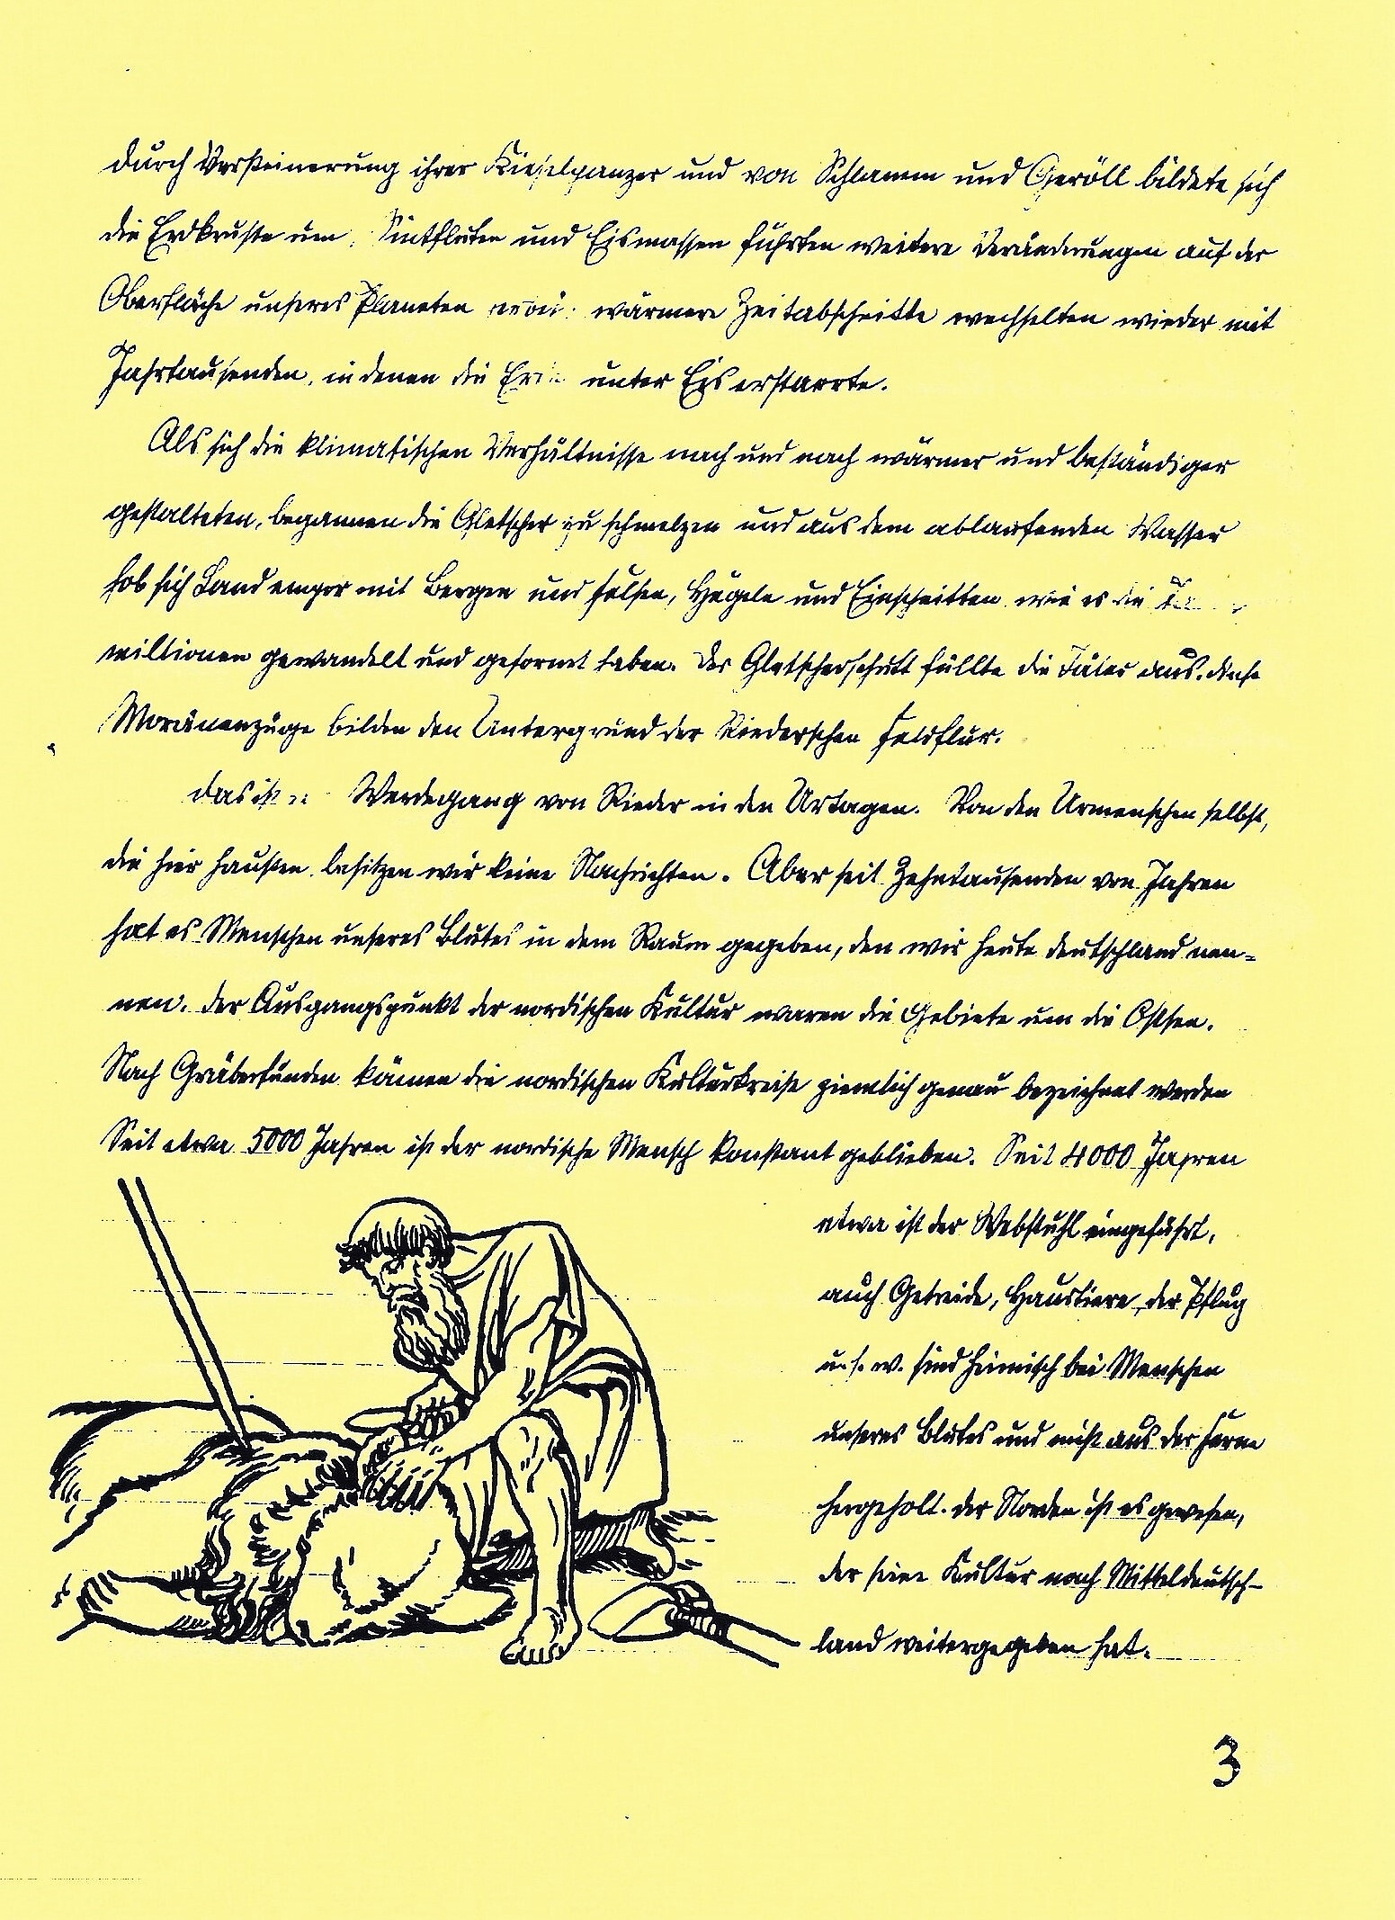 durch Versteinerung ihrer Kieselpanzer und von Schlamm und Geröll bildete sich
die Erdkruste um. Sintfluten und Eismassen führten weitere Veränderungen auf der
Oberfläche unseres Planeten wärmere Zeitabschnitte wechselten wieder mit
Jahrtausenden, in denen die unter Eis erstarrte.
Als sich die klimatischen Verhältnisse nach und nach wärmer und beständiger
gestalteten, begannen die Gletscher zu schmelzen und aus dem ablaufenden Wasser
hob sich Land empor mit Bergen und Felsen, Hügeln und Einschnitten wie es die
millionen gewandelt und geformt haben. Der Gletscherschutt füllte die Täler aus. diese
Moränenzüge bilden den Untergrund der Riederschen Feldflur.
das ist Werdegang von Rieder in den Urtagen. Von den Urmenschen selbst,
die hier hausten besitzen wir keine Nachrichten. Aber seit Zehntausenden von Jahren
hat es Menschen unseres Blutes in dem Raum gegeben, den wir heute deutschland nen=
nen. der Ausgangspunkt der nordischen Kultur waren die Gebiete um die Ostsee.
Nach Gräberfunden können die nordischen Kulturkreise ziemlich genau bezeichnet werden
Seit etwa 5000 Jahren ist der nordische Mensch konstant geblieben. Seit 4000 Jahren
etwa ist der Webstuhl eingeführt,
auch Getreide, Haustiere, der Pflug
u. s. w. sind heimisch bei Menschen
unseres Blutes und nicht aus der Ferne
hergeholt. der Norden ist es gewesen,
der seine Kultur nach Mitteldeutsch-
land weitergegeben hat.
3